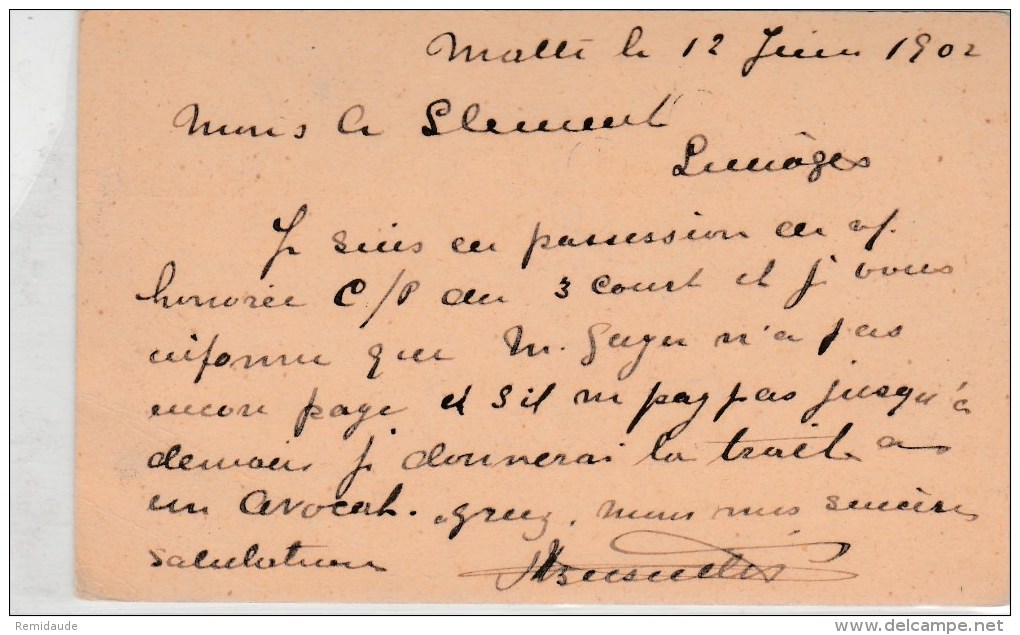 Malte le 12 Juin 1902
Mons Clement
Limoges
Je suis en possession de v/.
honorée C/P du 3 court et je vous
informe que M. n'a pas
encore payé et s'il ne pay pas jusqu'à
demain je donnerai la traite a
un avocat. agreez, mes sincères
salutations
Remidaude
http://www.delcampe.net